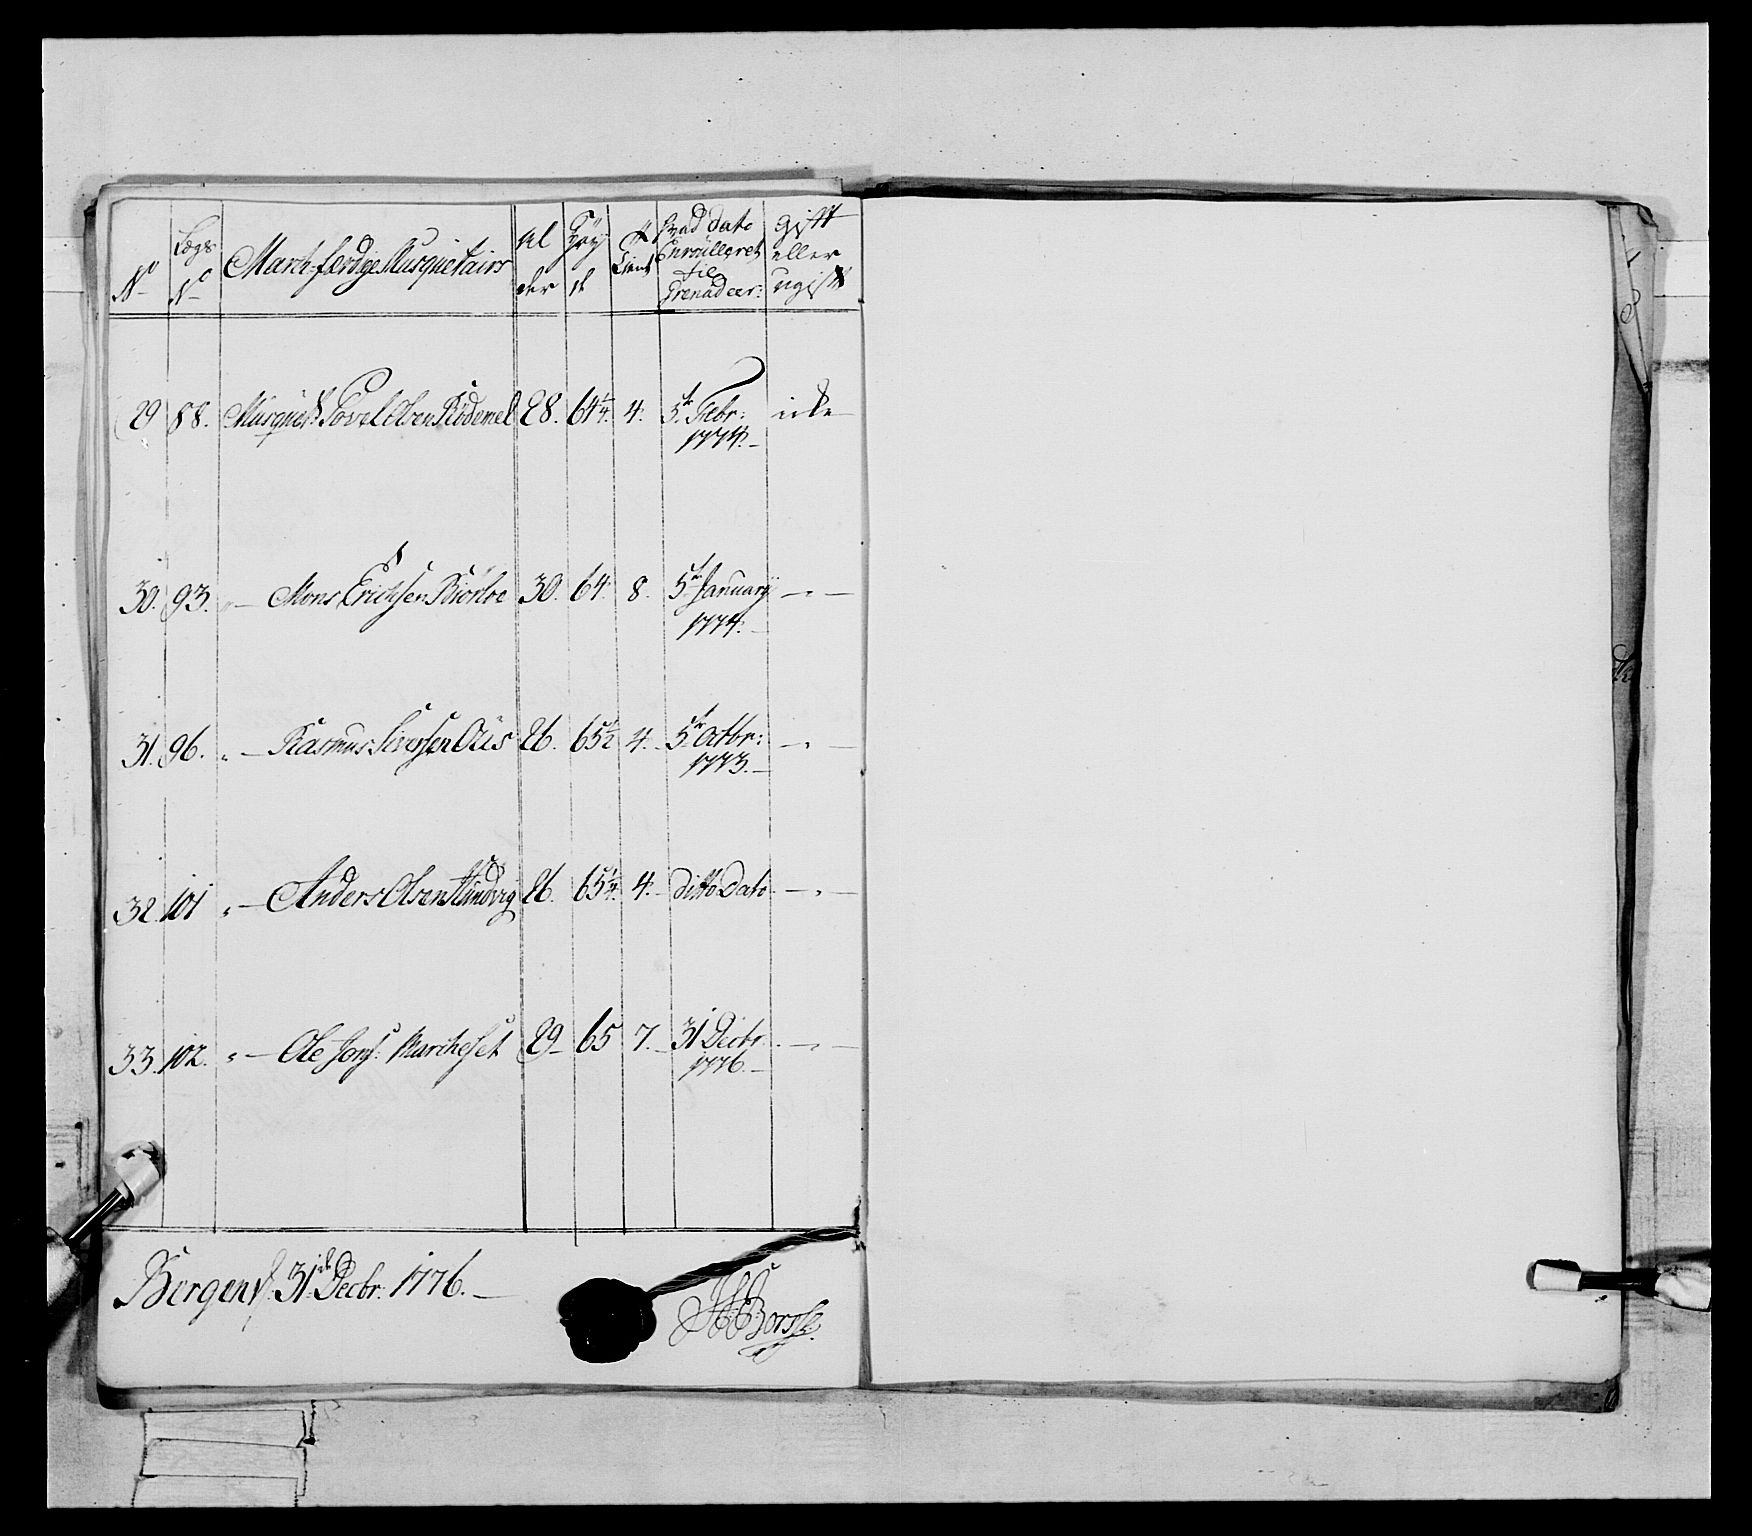 No Lægs No March-færdige Musquetairs Alder Höyde Aar Tient Hvad dato Enroulleret til Grenadeer: gift eller ugift
29 88. Musquet: Povel Olsen Rödemel 28. 64¼. 4. 5te Febr: 1774. ikke
30. 93. " — Mons Erichsen 30. 64. 8. 5te January 1774. — " —
31. 96. " — Rasmus Siversen Aus 26. 65½ 4. 5te Octbr: 1773. — " —
32. 101 " — Anders Olsen Hundvig 26. 65¼. 4. ditto Dato — " —
33. 102. " — Ole Jons: Marcheset 29 65 7. 31 Decbr. 1776. — " —
Bergen d. 31te Decbr. 1776. —